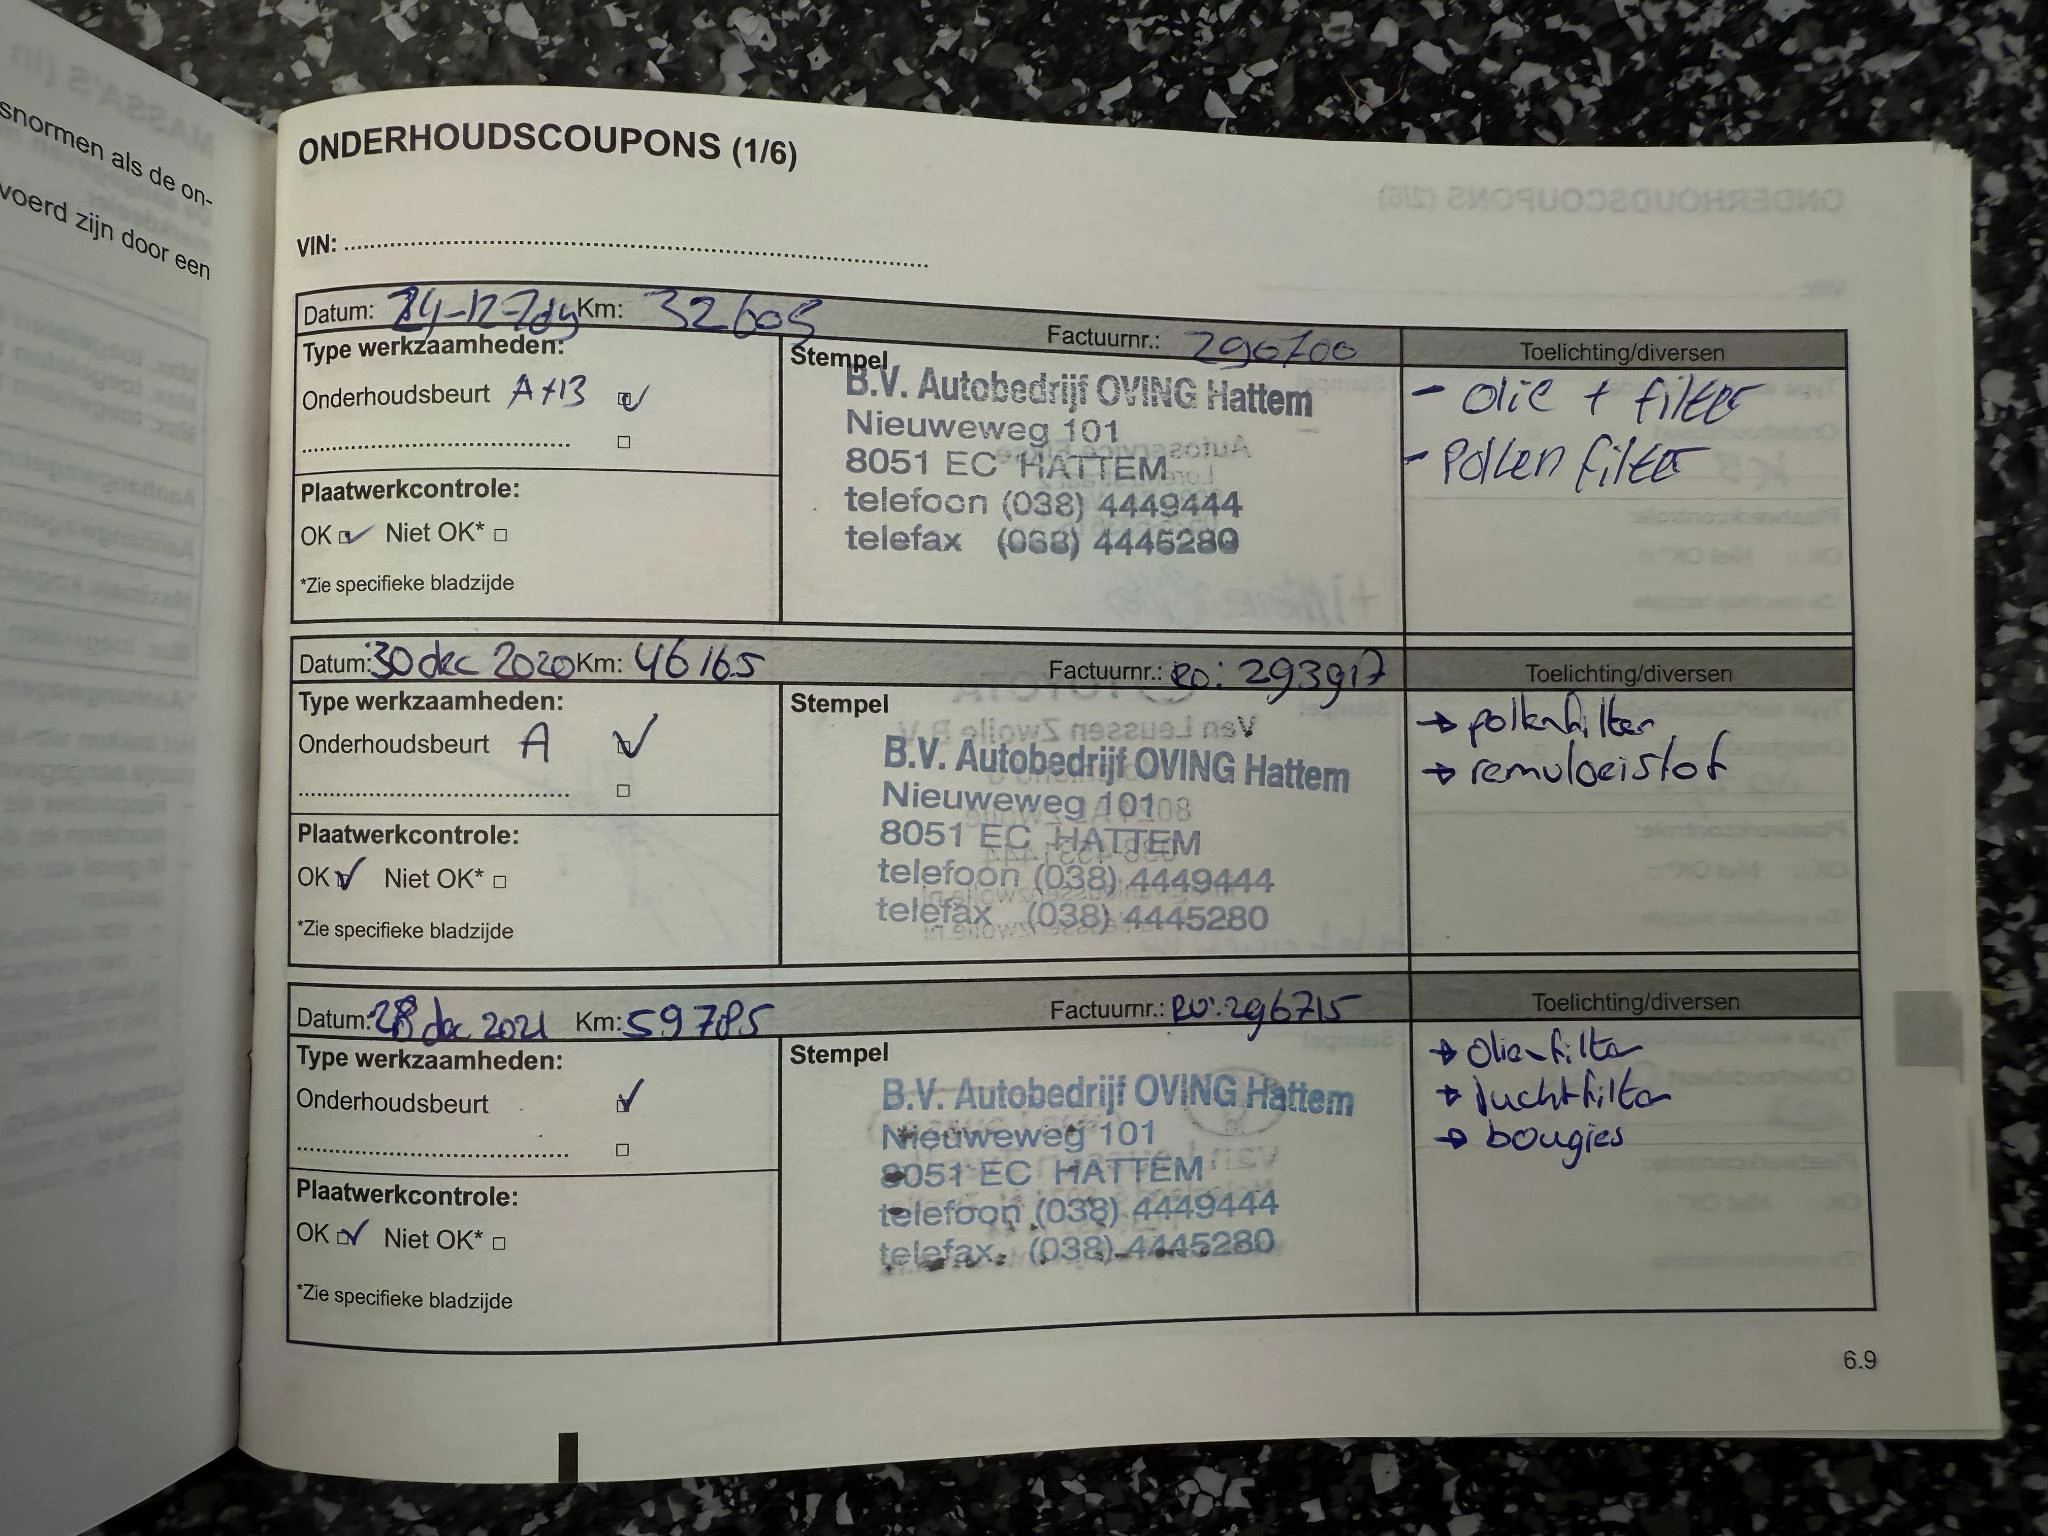 snormen als de on-
voerd zijn door een
ONDERHOUDSCOUPONS (1/6)
VIN:
Datum: 24-12-2019 Km: 32605 Factuurnr.: 290700 Toelichting/diversen
Type werkzaamheden:
Onderhoudsbeurt A+B
Plaatwerkcontrole:
OK Niet OK*
*Zie specifieke bladzijde
Stempel
B.V. Autobedrijf OVING Hattem
Nieuweweg 101
8051 EC HATTEM
telefoon (038) 4449444
telefax (038) 4445280
- olie + filter
- Pollen filter
Datum: 30 dec 2020 Km: 46165 Factuurnr.: RO: 293917 Toelichting/diversen
Type werkzaamheden:
Onderhoudsbeurt A
Plaatwerkcontrole:
OK Niet OK*
*Zie specifieke bladzijde
Stempel
B.V. Autobedrijf OVING Hattem
Nieuweweg 101
8051 EC HATTEM
telefoon (038) 4449444
telefax (038) 4445280
→ pollenfilter
→ remvloeistof
Datum: 28 dec 2021 Km: 59785 Factuurnr.: RO: 296715 Toelichting/diversen
Type werkzaamheden:
Onderhoudsbeurt
Plaatwerkcontrole:
OK Niet OK*
*Zie specifieke bladzijde
Stempel
B.V. Autobedrijf OVING Hattem
Nieuweweg 101
8051 EC HATTEM
telefoon (038) 4449444
telefax (038) 4445280
→ olie+filter
→ luchtfilter
→ bougies
6.9